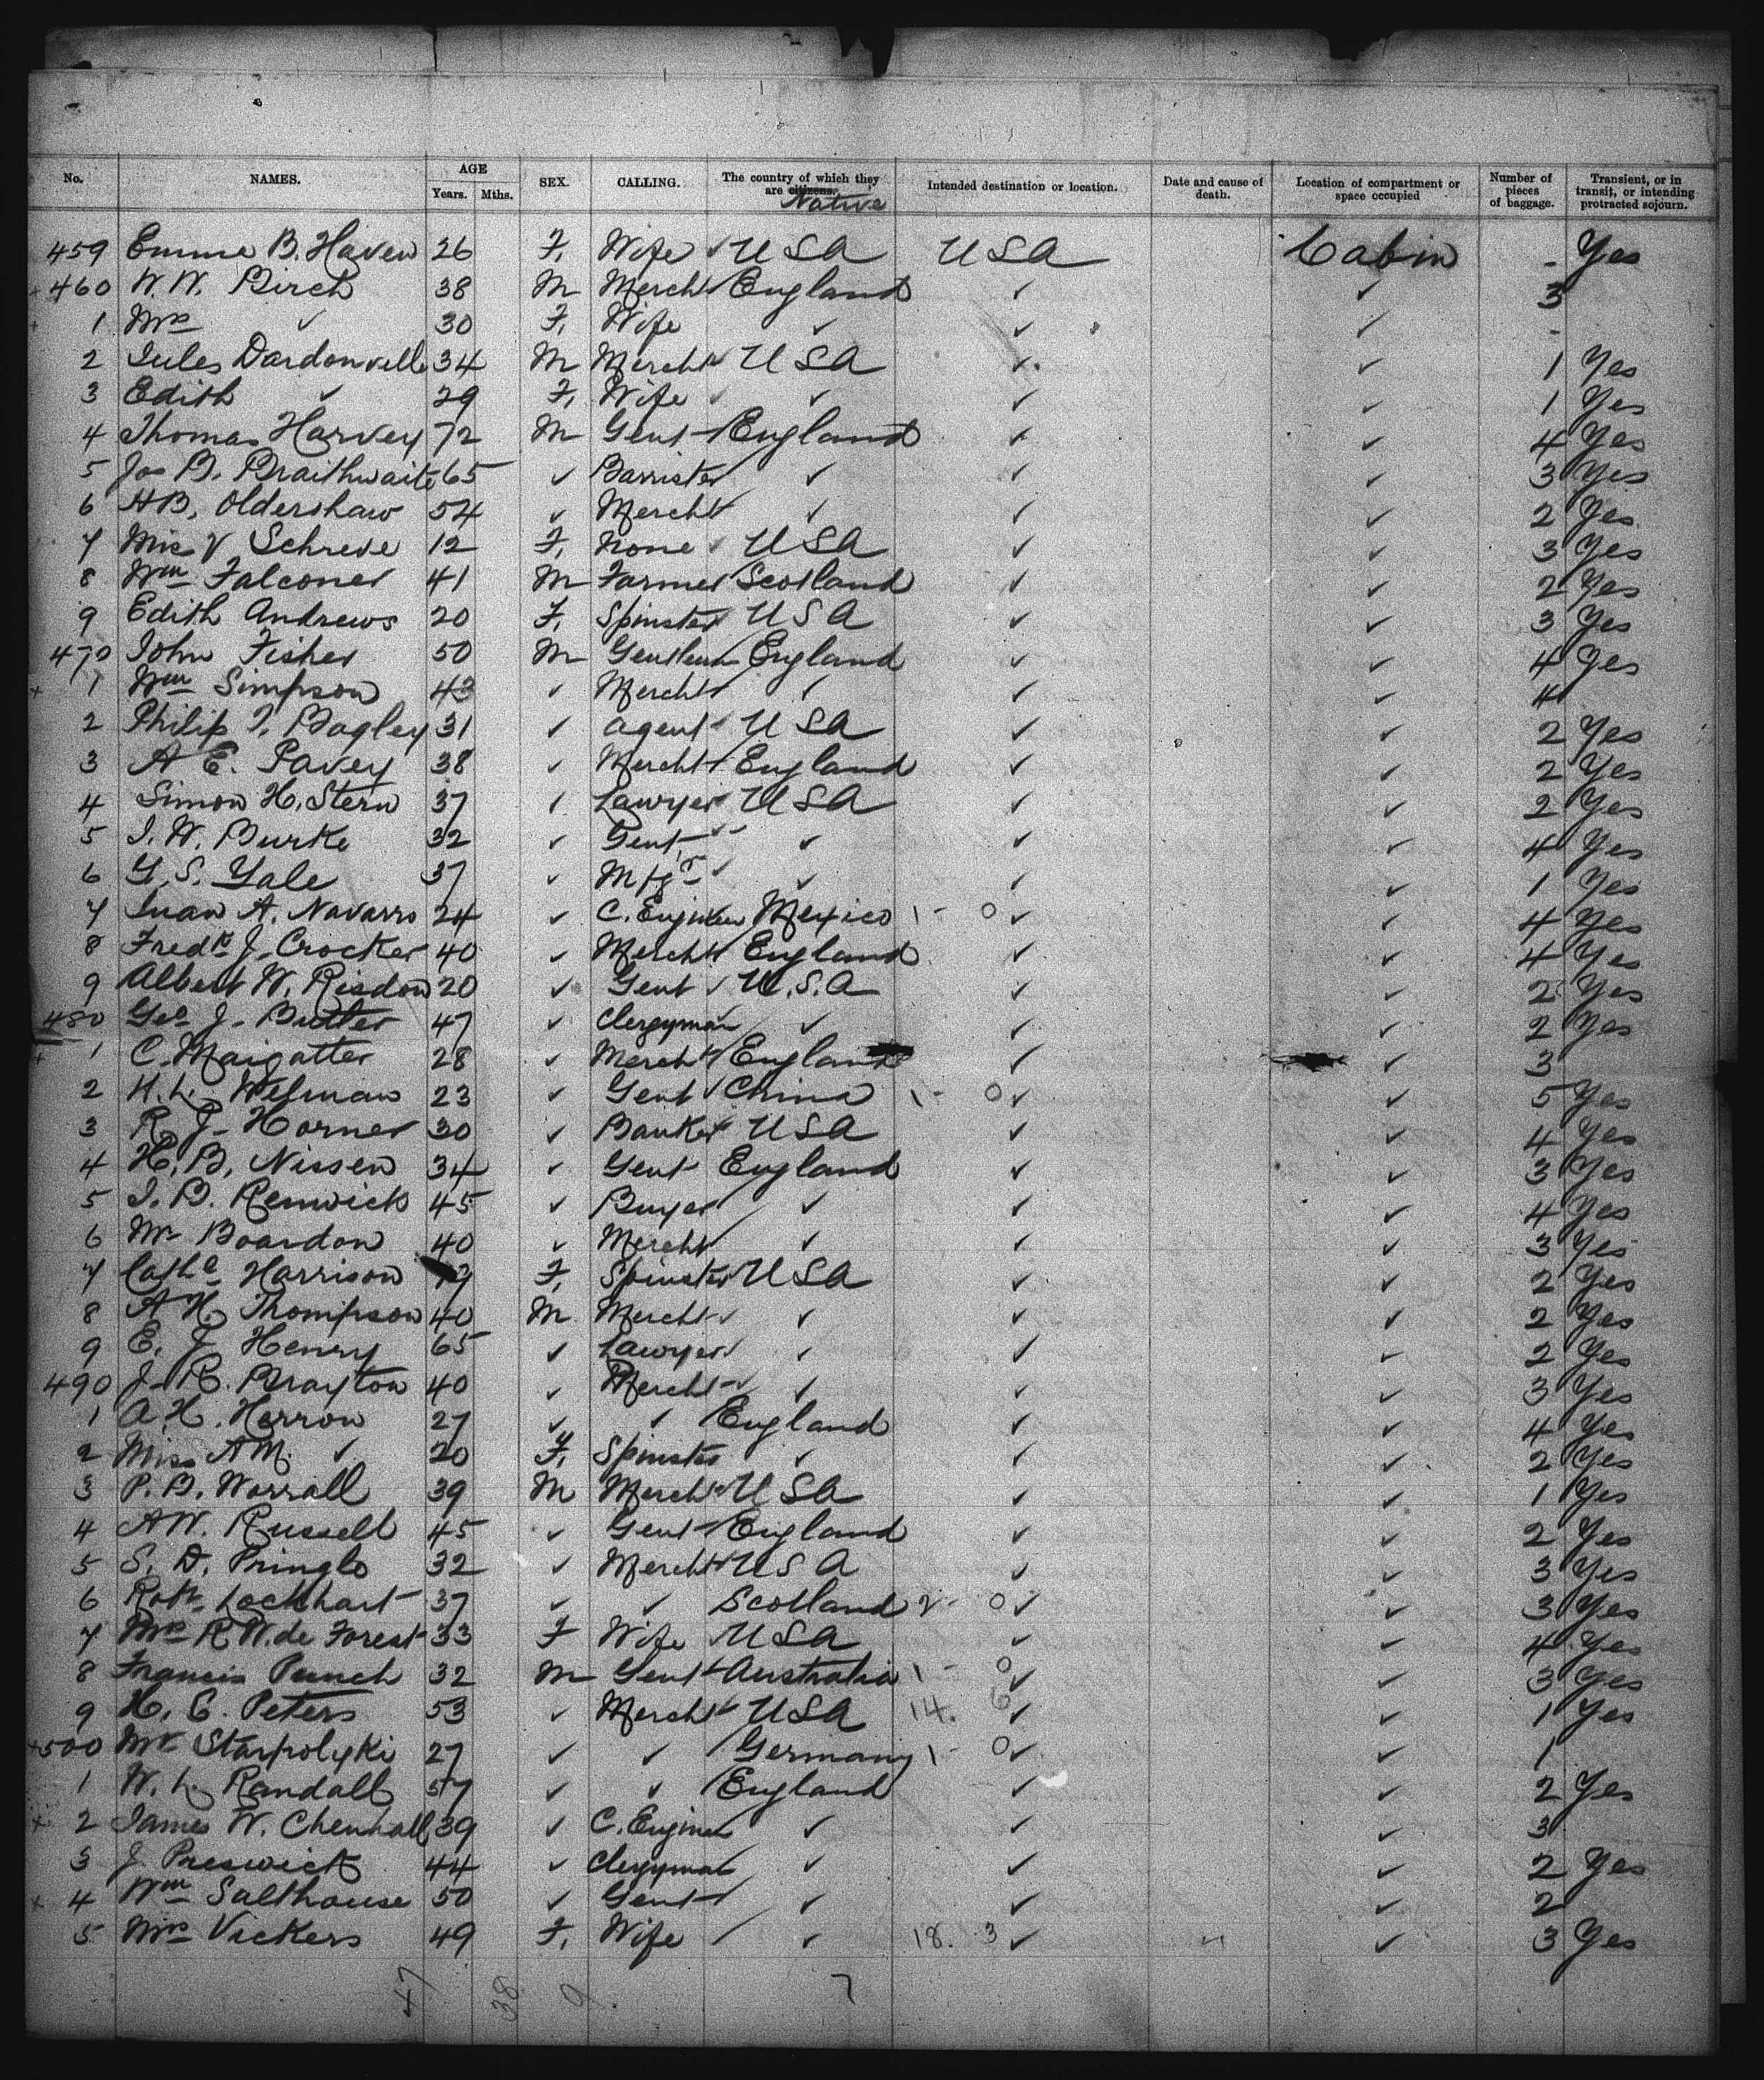 No. NAMES. AGE Years. Mths. SEX. CALLING. The country of which they are citizens. Native Intended destination or location. Date and cause of death. Location of compartment or space occupied Number of pieces of baggage. Transient, or in transit, or intending protracted sojourn.
459 Emma B. Haven 26 F, Wife ✓ USA USA Cabin - Yes
+ 460 W. W. Birch 38 M Mercht England ✓ ✓ 3
+ 1 Mrs ✓ 30 F, Wife ✓ ✓ ✓ -
2 Jules Dardonville 34 M Mercht USA ✓ ✓ 1 Yes
3 Edith ✓ 29 F, Wife ✓ ✓ ✓ ✓ 1 Yes
4 Thomas Harvey 72 M Gent England ✓ ✓ 4 Yes
5 Jos B. Braithwaite 65 ✓ Barrister ✓ ✓ ✓ 3 Yes
6 HB, Oldershaw 54 ✓ Mercht ✓ ✓ ✓ 2 Yes
7 Miss V Schreve 12 F, None ✓ USA ✓ ✓ 3 Yes
8 Wm Falconer 41 M Farmer Scotland ✓ ✓ 2 Yes
9 Edith Andrews 20 F, Spinster USA ✓ ✓ 3 Yes
470 John Fisher 50 M Gentlemn England ✓ ✓ 4 Yes
+ 1 Wm Simpson 43 ✓ Mercht ✓ ✓ ✓ 4
2 Philip I. Bagley 31 ✓ Agent USA ✓ ✓ 2 Yes
3 A E. Pavey 38 ✓ Mercht England ✓ ✓ 2 Yes
4 Simon H. Stern 37 ✓ Lawyer USA ✓ ✓ 2 Yes
5 J. W. Burke 32 ✓ Gent ✓ ✓ ✓ 4 Yes
6 G. S. Yale 37 ✓ Mfgr ✓ ✓ ✓ ✓ 1 Yes
7 Juan A. Navarro 24 ✓ C. Engineer Mexico 1 - 0 ✓ ✓ 4 Yes
8 Fredk J. Crocker 40 ✓ Mercht England ✓ ✓ 4 Yes
9 Albert W. Risdon 20 ✓ Gent ✓ U.S.A ✓ ✓ 2 Yes
480 Geo J. Butler 47 ✓ Clergyman ✓ ✓ ✓ 2 Yes
+ 1 C. Maigatter 28 ✓ Mercht England ✓ ✓ 3
2 H. L. Welman 23 ✓ Gent ✓ China 1 - 0 ✓ ✓ 5 Yes
3 R J. Horner 30 ✓ Banker USA ✓ ✓ 4 Yes
4 H. B. Nissen 34 ✓ Gent England ✓ ✓ 3 Yes
5 J. B. Renwick 45 ✓ Buyer ✓ ✓ ✓ 4 Yes
6 Mr Boardon 40 ✓ Mercht ✓ ✓ ✓ 3 Yes
7 Cathe Harrison 19 F, Spinster USA ✓ ✓ 2 Yes
8 A H. Thompson 40 M Mercht ✓ ✓ ✓ ✓ 2 Yes
9 E. J. Henry 65 ✓ Lawyer ✓ ✓ ✓ ✓ 2 Yes
490 J. R. Brayton 40 ✓ Mercht ✓ ✓ ✓ ✓ 3 Yes
1 A. H. Herron 27 ✓ ✓ England ✓ ✓ 4 Yes
2 Miss A M. ✓ 20 F, Spinster ✓ ✓ ✓ 2 Yes
3 P. B. Worrall 39 M Mercht USA ✓ ✓ 1 Yes
4 AW. Russell 45 ✓ Gent England ✓ ✓ 2 Yes
5 S. D. Pringle 32 ✓ Mercht USA ✓ ✓ 3 Yes
6 Robt. Lockhart 37 ✓ ✓ Scotland 2 - 0 ✓ ✓ 3 Yes
7 Mrs R W. de Forest 33 F Wife USA ✓ ✓ 4 Yes
8 Francis Punch 32 M Gent Australia 1 - 0 ✓ ✓ 3 Yes
9 H. C. Peters 53 ✓ Mercht USA 14. 6 ✓ ✓ 1 Yes
+ 500 Mr Starpolyki 27 ✓ ✓ Germany 1 - 0 ✓ ✓ 1
1 W. L. Randall 57 ✓ ✓ England ✓ ✓ 2 Yes
+ 2 James W. Chenhall 39 ✓ C. Engineer ✓ ✓ ✓ 3
3 J. Preswick 44 ✓ Clergyman ✓ ✓ ✓ 2 Yes
+ 4 Wm Salthouse 50 ✓ Gent ✓ ✓ ✓ 2
5 Mrs Vickers 49 F, Wife ✓ ✓ 18. 3 ✓ ✓ 3 Yes
47 38 9 7